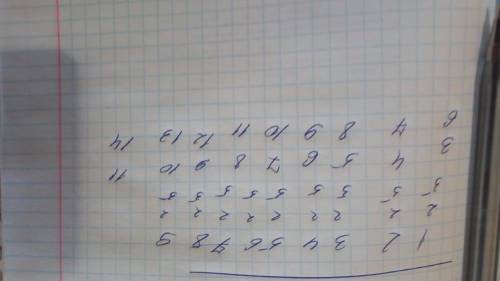 1 2 3 4 5 6 7 8 9
2 2 2 2 2 2 2 2 2
5 5 5 5 5 5 5 5 5
3 4 5 6 7 8 9 10 11
6 7 8 9 10 11 12 13 14